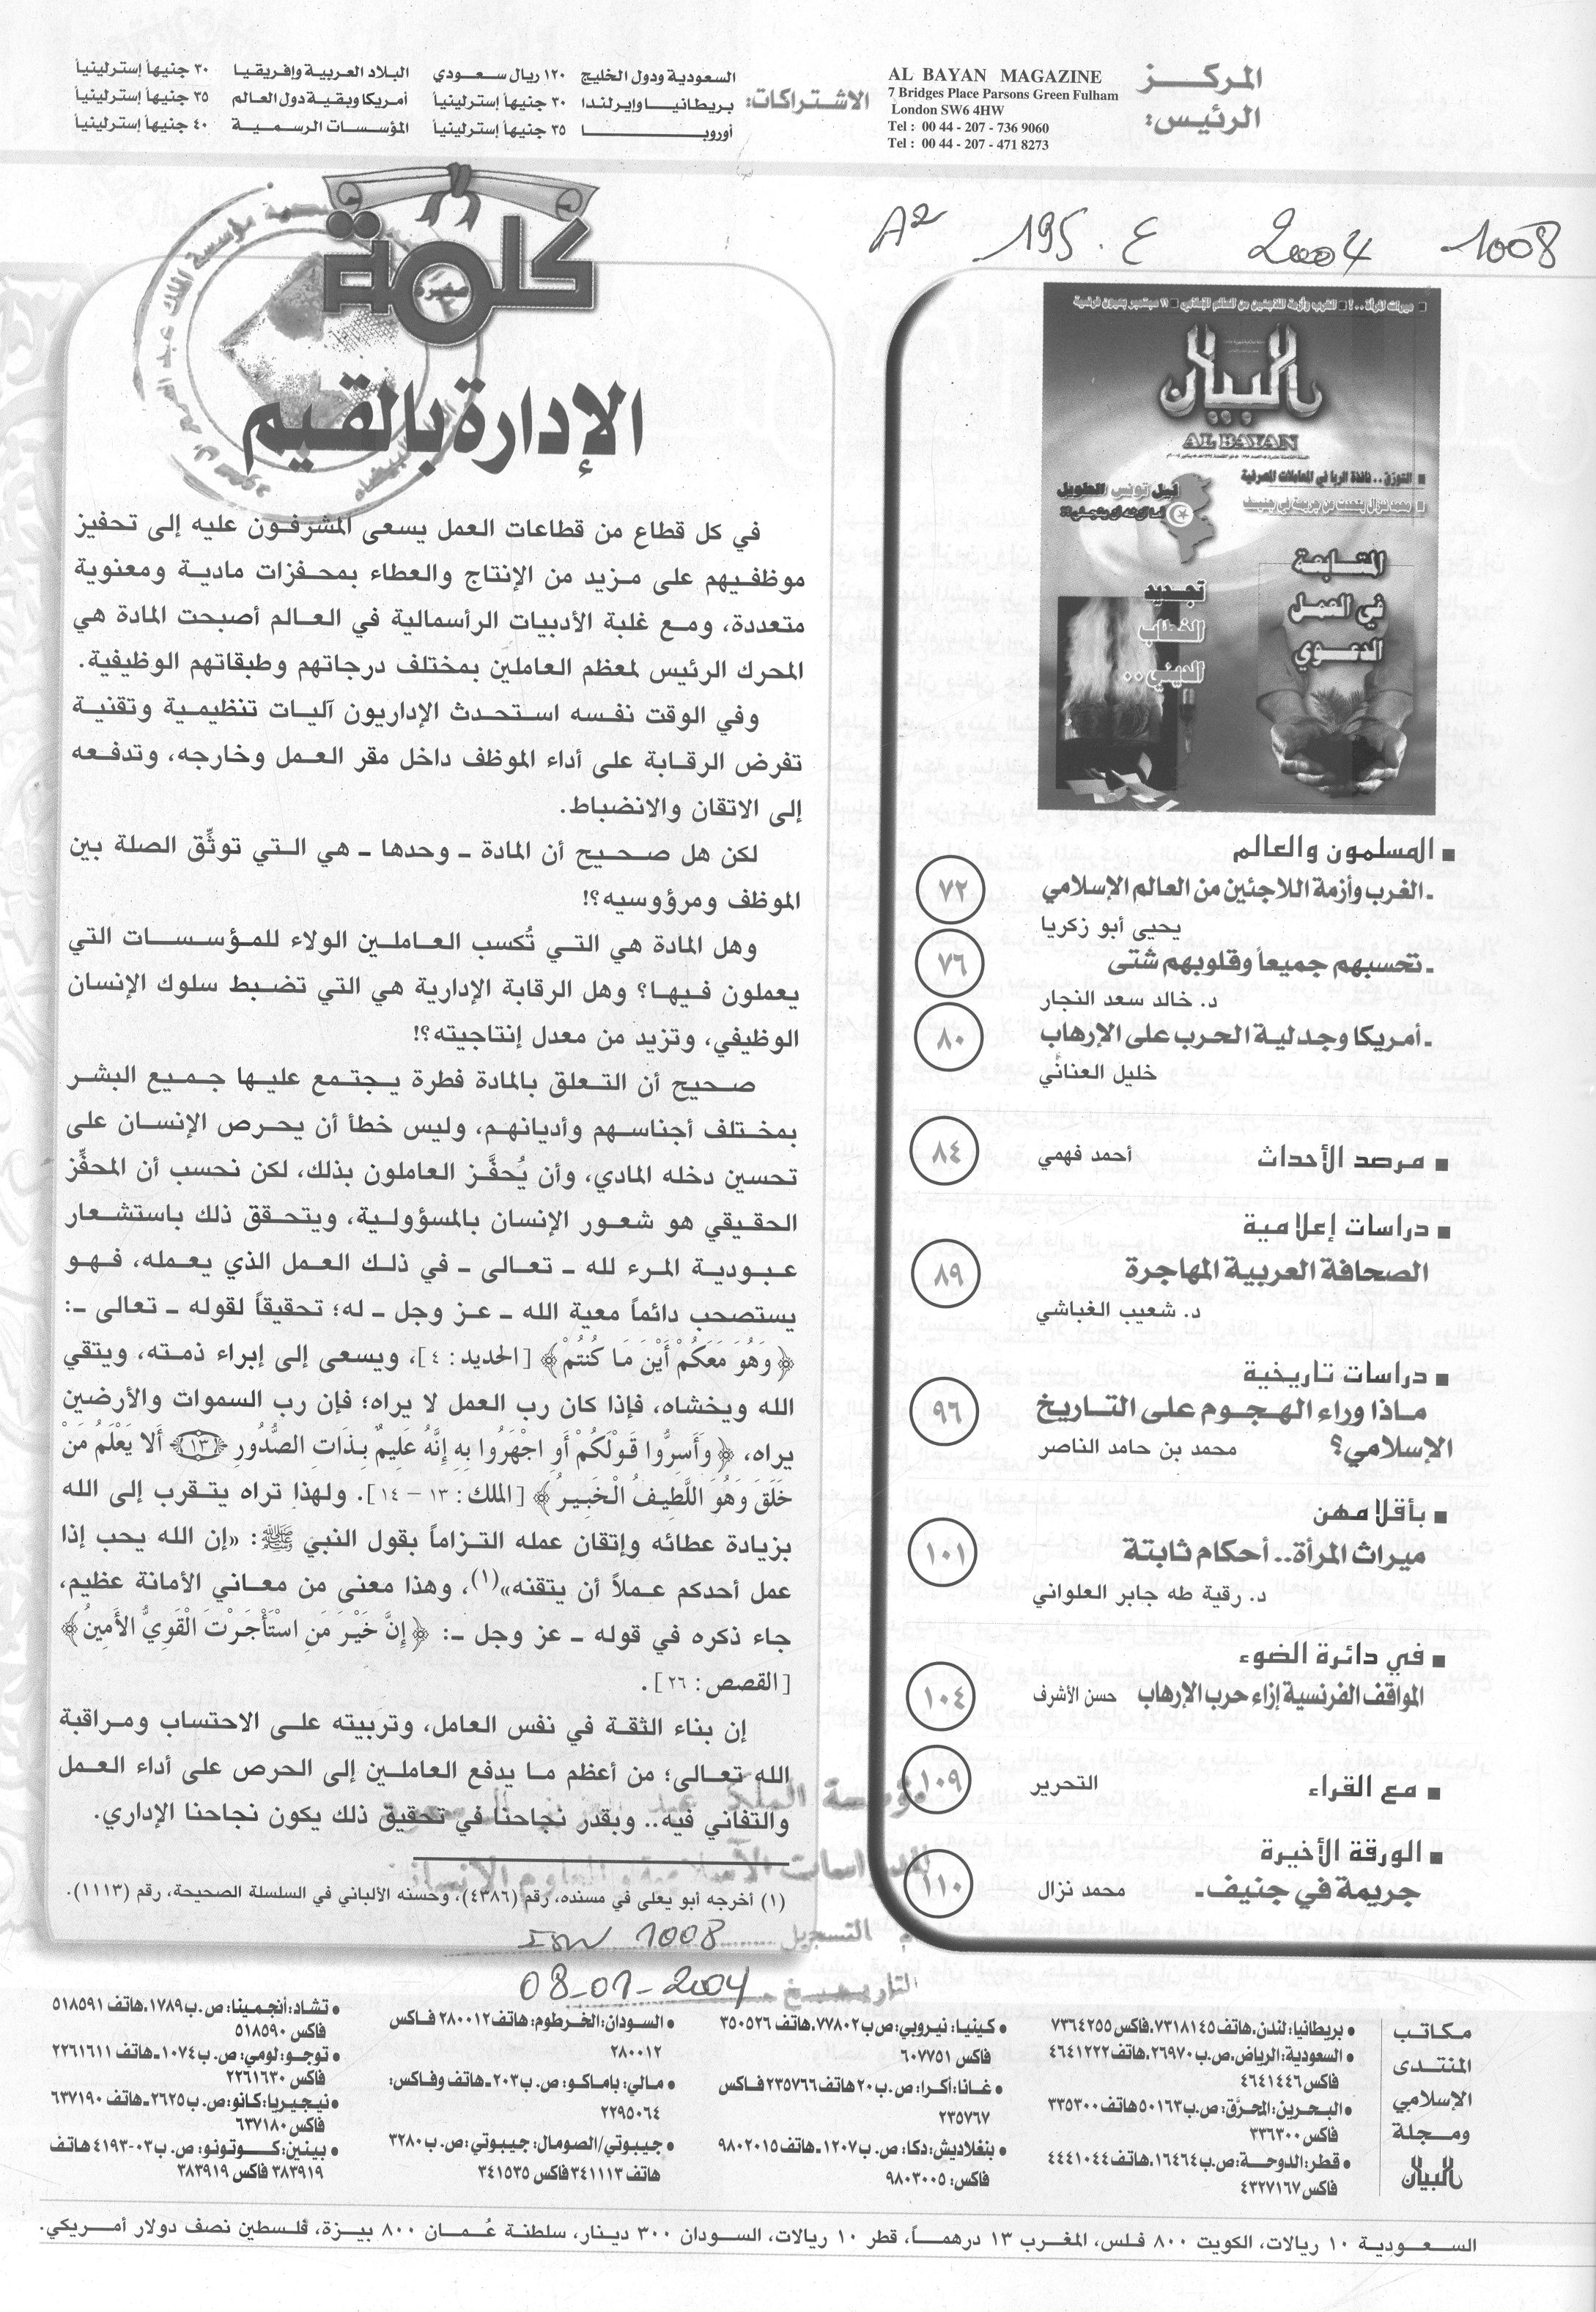 المركز
الرئيس:
AL BAYAN MAGAZINE
7 Bridges Place Parsons Green Fulham
London SW6 4HW
Tel : 00 44 - 207 - 736 9060
Tel : 00 44 - 207 - 471 8273
الاشتراكات:
السعودية ودول الخليج ١٢٠ ريال سعودي
بريطانيا وإيرلندا ٣٠ جنيهاً إسترلينياً
أوروبا ٣٥ جنيهاً إسترلينياً
البلاد العربية وإفريقيا ٣٠ جنيهاً إسترلينياً
أمريكا وبقية دول العالم ٣٥ جنيهاً إسترلينياً
المؤسسات الرسمية ٤٠ جنيهاً إسترلينياً
A2 195.ع 2004 -1008
البيان
AL BAYAN
التورق.. نافذة الربا في المعاملات المصرفية
محمد نزال يتحدث عن جريمة في جنيف
ليل تونس الطويل
المتابعة
في العمل
الدعوي
تجديد
الخطاب
الديني..
■ المسلمون والعالم
ـ الغرب وأزمة اللاجئين من العالم الإسلامي ٧٢
يحيى أبو زكريا
ـ تحسبهم جميعاً وقلوبهم شتى ٧٦
د. خالد سعد النجار
ـ أمريكا وجدلية الحرب على الإرهاب ٨٠
خليل العناني
■ مرصد الأحداث أحمد فهمي ٨٤
■ دراسات إعلامية
الصحافة العربية المهاجرة ٨٩
د. شعيب الغباشي
■ دراسات تاريخية
ماذا وراء الهجوم على التاريخ ٩٦
الإسلامي؟ محمد بن حامد الناصر
■ بأقلامهن
ميراث المرأة.. أحكام ثابتة ١٠١
د. رقية طه جابر العلواني
■ في دائرة الضوء
المواقف الفرنسية إزاء حرب الإرهاب حسن الأشرف ١٠٤
■ مع القراء التحرير ١٠٩
■ الورقة الأخيرة
جريمة في جنيف ـ محمد نزال ١١٠
كلمة
صغيرة
الإدارة بالقيم
في كل قطاع من قطاعات العمل يسعى المشرفون عليه إلى تحفيز
موظفيهم على مزيد من الإنتاج والعطاء بمحفزات مادية ومعنوية
متعددة، ومع غلبة الأدبيات الرأسمالية في العالم أصبحت المادة هي
المحرك الرئيس لمعظم العاملين بمختلف درجاتهم وطبقاتهم الوظيفية.
وفي الوقت نفسه استحدث الإداريون آليات تنظيمية وتقنية
تفرض الرقابة على أداء الموظف داخل مقر العمل وخارجه، وتدفعه
إلى الاتقان والانضباط.
لكن هل صحيح أن المادة ـ وحدها ـ هي التي توثِّق الصلة بين
الموظف ومرؤوسيه؟!
وهل المادة هي التي تُكسب العاملين الولاء للمؤسسات التي
يعملون فيها؟ وهل الرقابة الإدارية هي التي تضبط سلوك الإنسان
الوظيفي، وتزيد من معدل إنتاجيته؟!
صحيح أن التعلق بالمادة فطرة يجتمع عليها جميع البشر
بمختلف أجناسهم وأديانهم، وليس خطأ أن يحرص الإنسان على
تحسين دخله المادي، وأن يُحفَّز العاملون بذلك، لكن نحسب أن المحفِّز
الحقيقي هو شعور الإنسان بالمسؤولية، ويتحقق ذلك باستشعار
عبودية المرء لله ـ تعالى ـ في ذلك العمل الذي يعمله، فهو
يستصحب دائماً معية الله ـ عز وجل ـ له؛ تحقيقاً لقوله ـ تعالى ـ:
﴿وَهُوَ مَعَكُمْ أَيْنَ مَا كُنتُمْ﴾ [الحديد: ٤]، ويسعى إلى إبراء ذمته، ويتقي
الله ويخشاه، فإذا كان رب العمل لا يراه؛ فإن رب السموات والأرضين
يراه، ﴿وَأَسِرُّوا قَوْلَكُمْ أَوِ اجْهَرُوا بِهِ إِنَّهُ عَلِيمٌ بِذَاتِ الصُّدُورِ (١٣) أَلا يَعْلَمُ مَنْ
خَلَقَ وَهُوَ اللَّطِيفُ الْخَبِيرُ﴾ [الملك: ١٣ - ١٤]. ولهذا تراه يتقرب إلى الله
بزيادة عطائه وإتقان عمله التزاماً بقول النبي ﷺ: «إن الله يحب إذا
عمل أحدكم عملاً أن يتقنه»(١)، وهذا معنى من معاني الأمانة عظيم،
جاء ذكره في قوله ـ عز وجل ـ: ﴿إِنَّ خَيْرَ مَنِ اسْتَأْجَرْتَ الْقَوِيُّ الأَمِينُ﴾
[القصص: ٢٦].
إن بناء الثقة في نفس العامل، وتربيته على الاحتساب ومراقبة
الله تعالى؛ من أعظم ما يدفع العاملين إلى الحرص على أداء العمل
والتفاني فيه.. وبقدر نجاحنا في تحقيق ذلك يكون نجاحنا الإداري.
(١) أخرجه أبو يعلى في مسنده، رقم (٤٣٨٦)، وحسنه الألباني في السلسلة الصحيحة، رقم (١١١٣).
التسجيل 1008
التاريخ 08-01-2004
مكاتب
المنتدى
الإسلامي
ومجلة
البيان
● بريطانيا: لندن، هاتف ٧٣١٨١٤٥، فاكس ٧٣٦٤٢٥٥
● السعودية: الرياض، ص.ب ٢٦٩٧٠، هاتف ٤٦٤١٢٢٢
فاكس ٤٦٤١٤٤٦
● البحرين: المحرّق: ص.ب ٥٠١٦٣ هاتف ٣٣٥٣٠٠
فاكس ٣٣٦٣٠٠
● قطر: الدوحة: ص.ب ١٦٤٦٤، هاتف ٤٤٤١٠٤٤
فاكس ٤٣٢٧١٦٧
● كينيا: نيروبي: ص ب ٧٧٨٠٢، هاتف ٣٥٠٥٢٦
فاكس ٦٠٧٧٥١
● غانا: أكرا: ص.ب ٢٠ هاتف ٢٣٥٧٦٦ فاكس
٢٣٥٧٦٧
● بنغلاديش: دكا: ص.ب ١٢٠٧ـ هاتف ٩٨٠٢٠١٥
فاكس: ٩٨٠٣٠٠٥
● السودان: الخرطوم: هاتف ٢٨٠٠١٢ فاكس
٢٨٠٠١٢
● مالي: باماكو: ص.ب ٢٠٣ـ هاتف وفاكس:
٢٢٩٥٠٦٤
● جيبوتي/الصومال: جيبوتي: ص. ب ٣٢٨٠
هاتف ٣٤١١١٣ فاكس ٣٤١٥٣٥
● تشاد: أنجمينا: ص. ب ١٧٨٩، هاتف ٥١٨٥٩١
فاكس ٥١٨٥٩٠
● توجو: لومي: ص. ب ١٠٧٤ـ هاتف ٢٢٦١٦١١
فاكس ٢٢٦١٦٣٠
● نيجيريا: كانو: ص.ب ٢٦٢٥ـ هاتف ٦٣٧١٩٠
فاكس ٦٣٧١٨٠
● بينين: كوتونو: ص.ب ٠٣-٤١٩٣ هاتف
٣٨٣٩١٩ فاكس ٣٨٣٩١٩
السعودية ١٠ ريالات، الكويت ٨٠٠ فلس، المغرب ١٣ درهماً، قطر ١٠ ريالات، السودان ٣٠٠ دينار، سلطنة عُمان ٨٠٠ بيزة، فلسطين نصف دولار أمريكي.